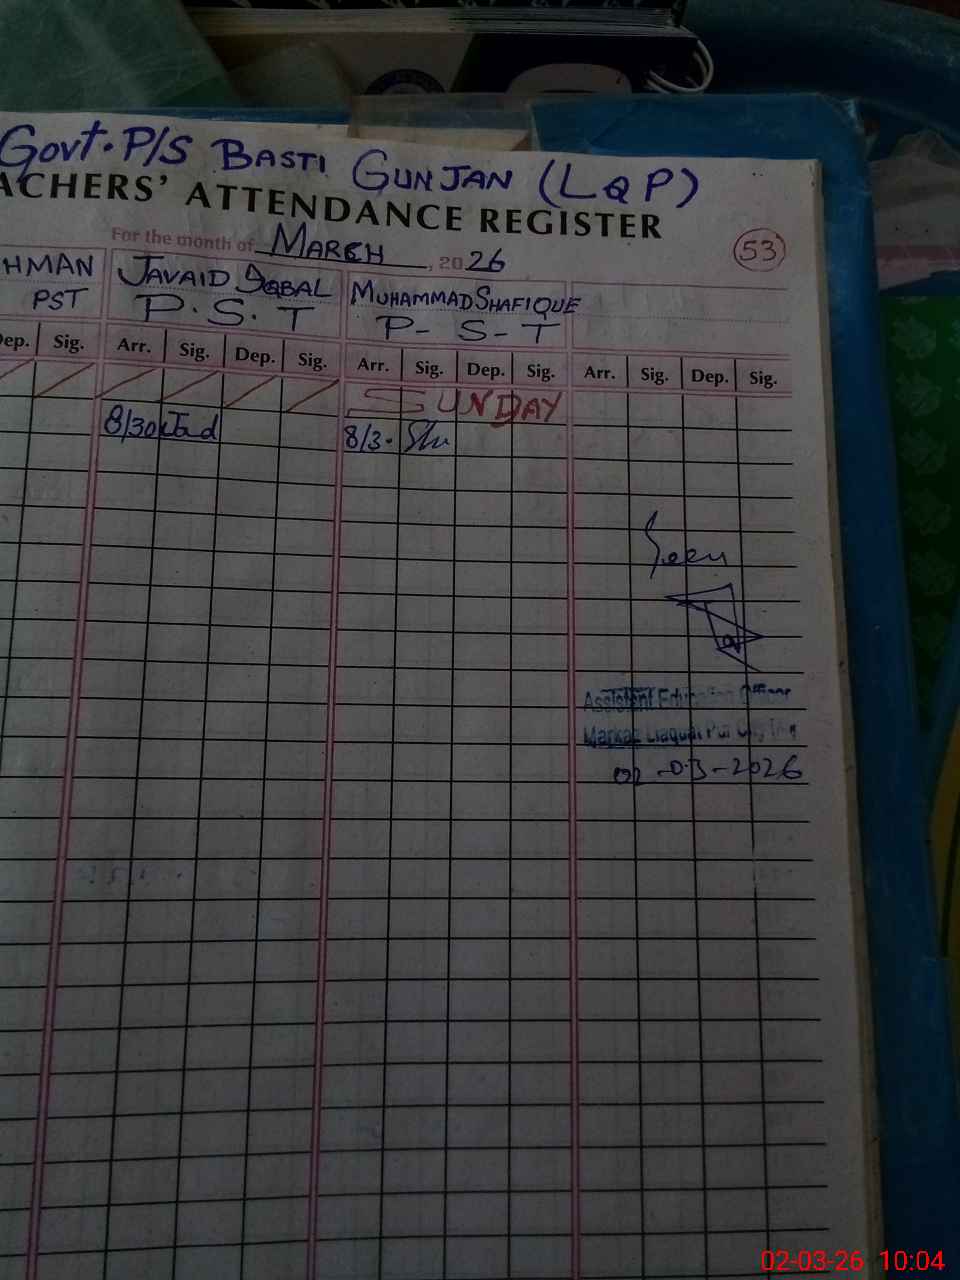 Govt. P/S BASTI GUNJAN (LQP)
ACHERS' ATTENDANCE REGISTER
For the month of MARCH, 2026
53
HMAN JAVAID IQBAL MUHAMMAD SHAFIQUE
PST P.S.T P-S-T
ep. Sig. Arr. Sig. Dep. Sig. Arr. Sig. Dep. Sig. Arr. Sig. Dep. Sig.
SUNDAY
8/30 8/3.
Seen
Assistent Education Officer
Markaz Liaquat Pur City
02-03-2026
02-03-26 10:04